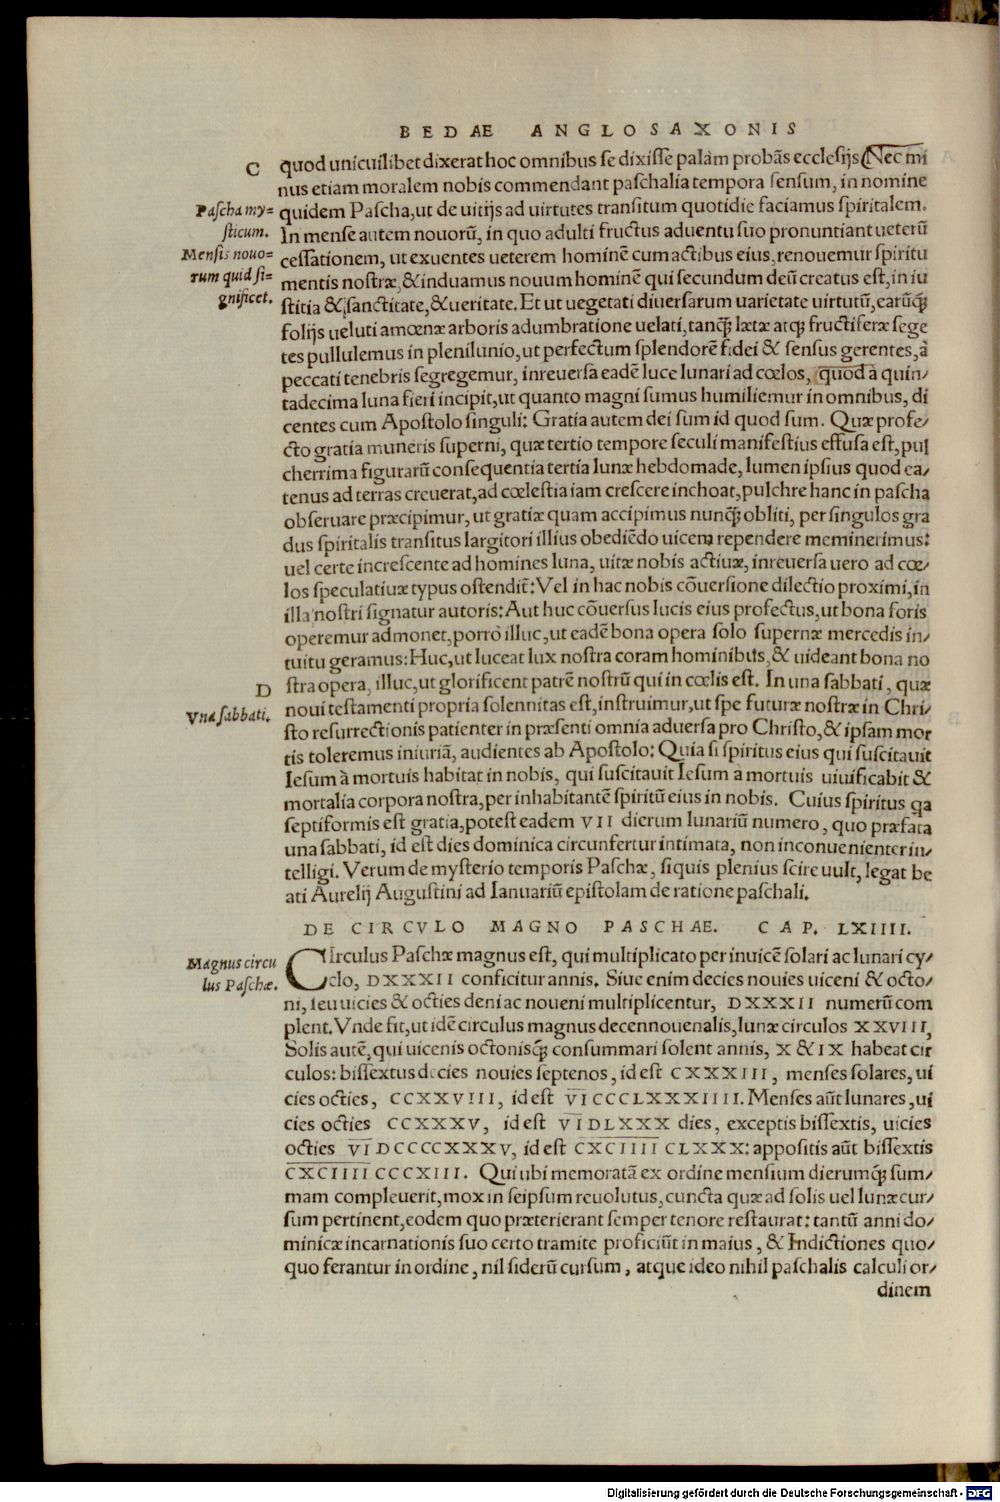 BEDAE ANGLOSAXONIS
C
quod unicuilibet dixerat hoc omnibus se dixisse palàm probãs ecclesijs. Nec mi
nus etiam moralem nobis commendant paschalia tempora sensum, in nomine
Pascha my=
quidem Pascha, ut de uitijs ad uirtutes transitum quotidie faciamus spiritalem.
sticum.
In mense autem nouorũ, in quo adulti fructus aduentu suo pronuntiant ueterũ
Mensis nouo=
cessationem, ut exuentes ueterem hominẽ cum actibus eius, renouemur spiritu
rum quid si=
mentis nostræ, & induamus nouum hominẽ qui secundum deũ creatus est, in iu
gnificet.
stitia & sanctitate, & ueritate. Et ut uegetati diuersarum uarietate uirtutũ, earũq̃
folijs ueluti amœnæ arboris adumbratione uelati, tanq̃ lætæ atq̃ fructiferæ sege
tes pullulemus in plenilunio, ut perfectum splendorẽ fidei & sensus gerentes, à
peccati tenebris segregemur, inreuersa eadẽ luce lunari ad cœlos, quod à quin/
tadecima luna fieri incipit, ut quanto magni sumus humiliemur in omnibus, di
centes cum Apostolo singuli: Gratia autem dei sum id quod sum. Quæ profe/
cto gratia muneris superni, quæ tertio tempore seculi manifestius effusa est, pul
cherrima figurarũ consequentia tertia lunæ hebdomade, lumen ipsius quod ea/
tenus ad terras creuerat, ad cœlestia iam crescere inchoat, pulchre hanc in pascha
obseruare præcipimur, ut gratiæ quam accipimus nunq̃ obliti, per singulos gra
dus spiritalis transitus largitori illius obediẽdo uicem rependere meminerimus:
uel certe increscente ad homines luna, uitæ nobis actiuæ, inreuersa uero ad cœ/
los speculatiuæ typus ostendit̃: Vel in hac nobis cõuersione dilectio proximi, in
illa nostri signatur autoris: Aut huc cõuersus lucis eius profectus, ut bona foris
operemur admonet, porrò illuc, ut eadẽ bona opera solo supernæ mercedis in/
tuitu geramus: Huc, ut luceat lux nostra coram hominibus, & uideant bona no
D
stra opera, illuc, ut glorificent patrẽ nostrũ qui in cœlis est. In una sabbati, quæ
Vna sabbati.
noui testamenti propria solennitas est, instruimur, ut spe futuræ nostræ in Chri/
sto resurrectionis patienter in præsenti omnia aduersa pro Christo, & ipsam mor
tis toleremus iniuriã, audientes ab Apostolo: Quia si spiritus eius qui suscitauit
Iesum à mortuis habitat in nobis, qui suscitauit Iesum à mortuis uiuificabit &
mortalia corpora nostra, per inhabitantẽ spiritũ eius in nobis. Cuius spiritus qa
septiformis est gratia, potest eadem VII dierum lunariũ numero, quo præfata
una sabbati, id est dies dominica circunfertur intimata, non inconuenienter in/
telligi. Verum de mysterio temporis Paschæ, siquis plenius scire uult, legat be
ati Aurelij Augustini ad Ianuariũ epistolam de ratione paschali.
DE CIRCVLO MAGNO PASCHAE. CAP. LXIIII.
Magnus circu
CIrculus Paschæ magnus est, qui multiplicato per inuicẽ solari ac lunari cy/
lus Paschæ.
clo, DXXXII conficitur annis. Siue enim decies nouies uiceni & octo/
ni, seu uicies & octies deni ac noueni multiplicentur, DXXXII numerũ com
plent. Vnde fit, ut idẽ circulus magnus decennouenalis, lunæ circulos XXVIII,
Solis autẽ, qui uicenis octonisq̃ consummari solent annis, X & IX habeat cir
culos: bissextus decies nouies septenos, id est CXXXIII, menses solares, ui
cies octies, CCXXVIII, id est V̅I̅CCCLXXXIIII. Menses aũt lunares, ui
cies octies CCXXXV, id est V̅I̅DLXXX dies, exceptis bissextis, uicies
octies V̅I̅DCCCCXXXV, id est C̅X̅C̅I̅I̅I̅I̅CLXXX: appositis aũt bissextis
C̅X̅C̅I̅I̅I̅I̅CCCXIII. Qui ubi memoratã ex ordine mensium dierumq̃ sum/
mam compleuerit, mox in seipsum reuolutus, cuncta quæ ad solis uel lunæ cur/
sum pertinent, eodem quo præterierant semper tenore restaurat: tantũ anni do/
minicæ incarnationis suo certo tramite proficiũt in maius, & Indictiones quo/
quo ferantur in ordine, nil siderũ cursum, atque ideo nihil paschalis calculi or/
dinem
Digitalisierung gefördert durch die Deutsche Forschungsgemeinschaft - DFG